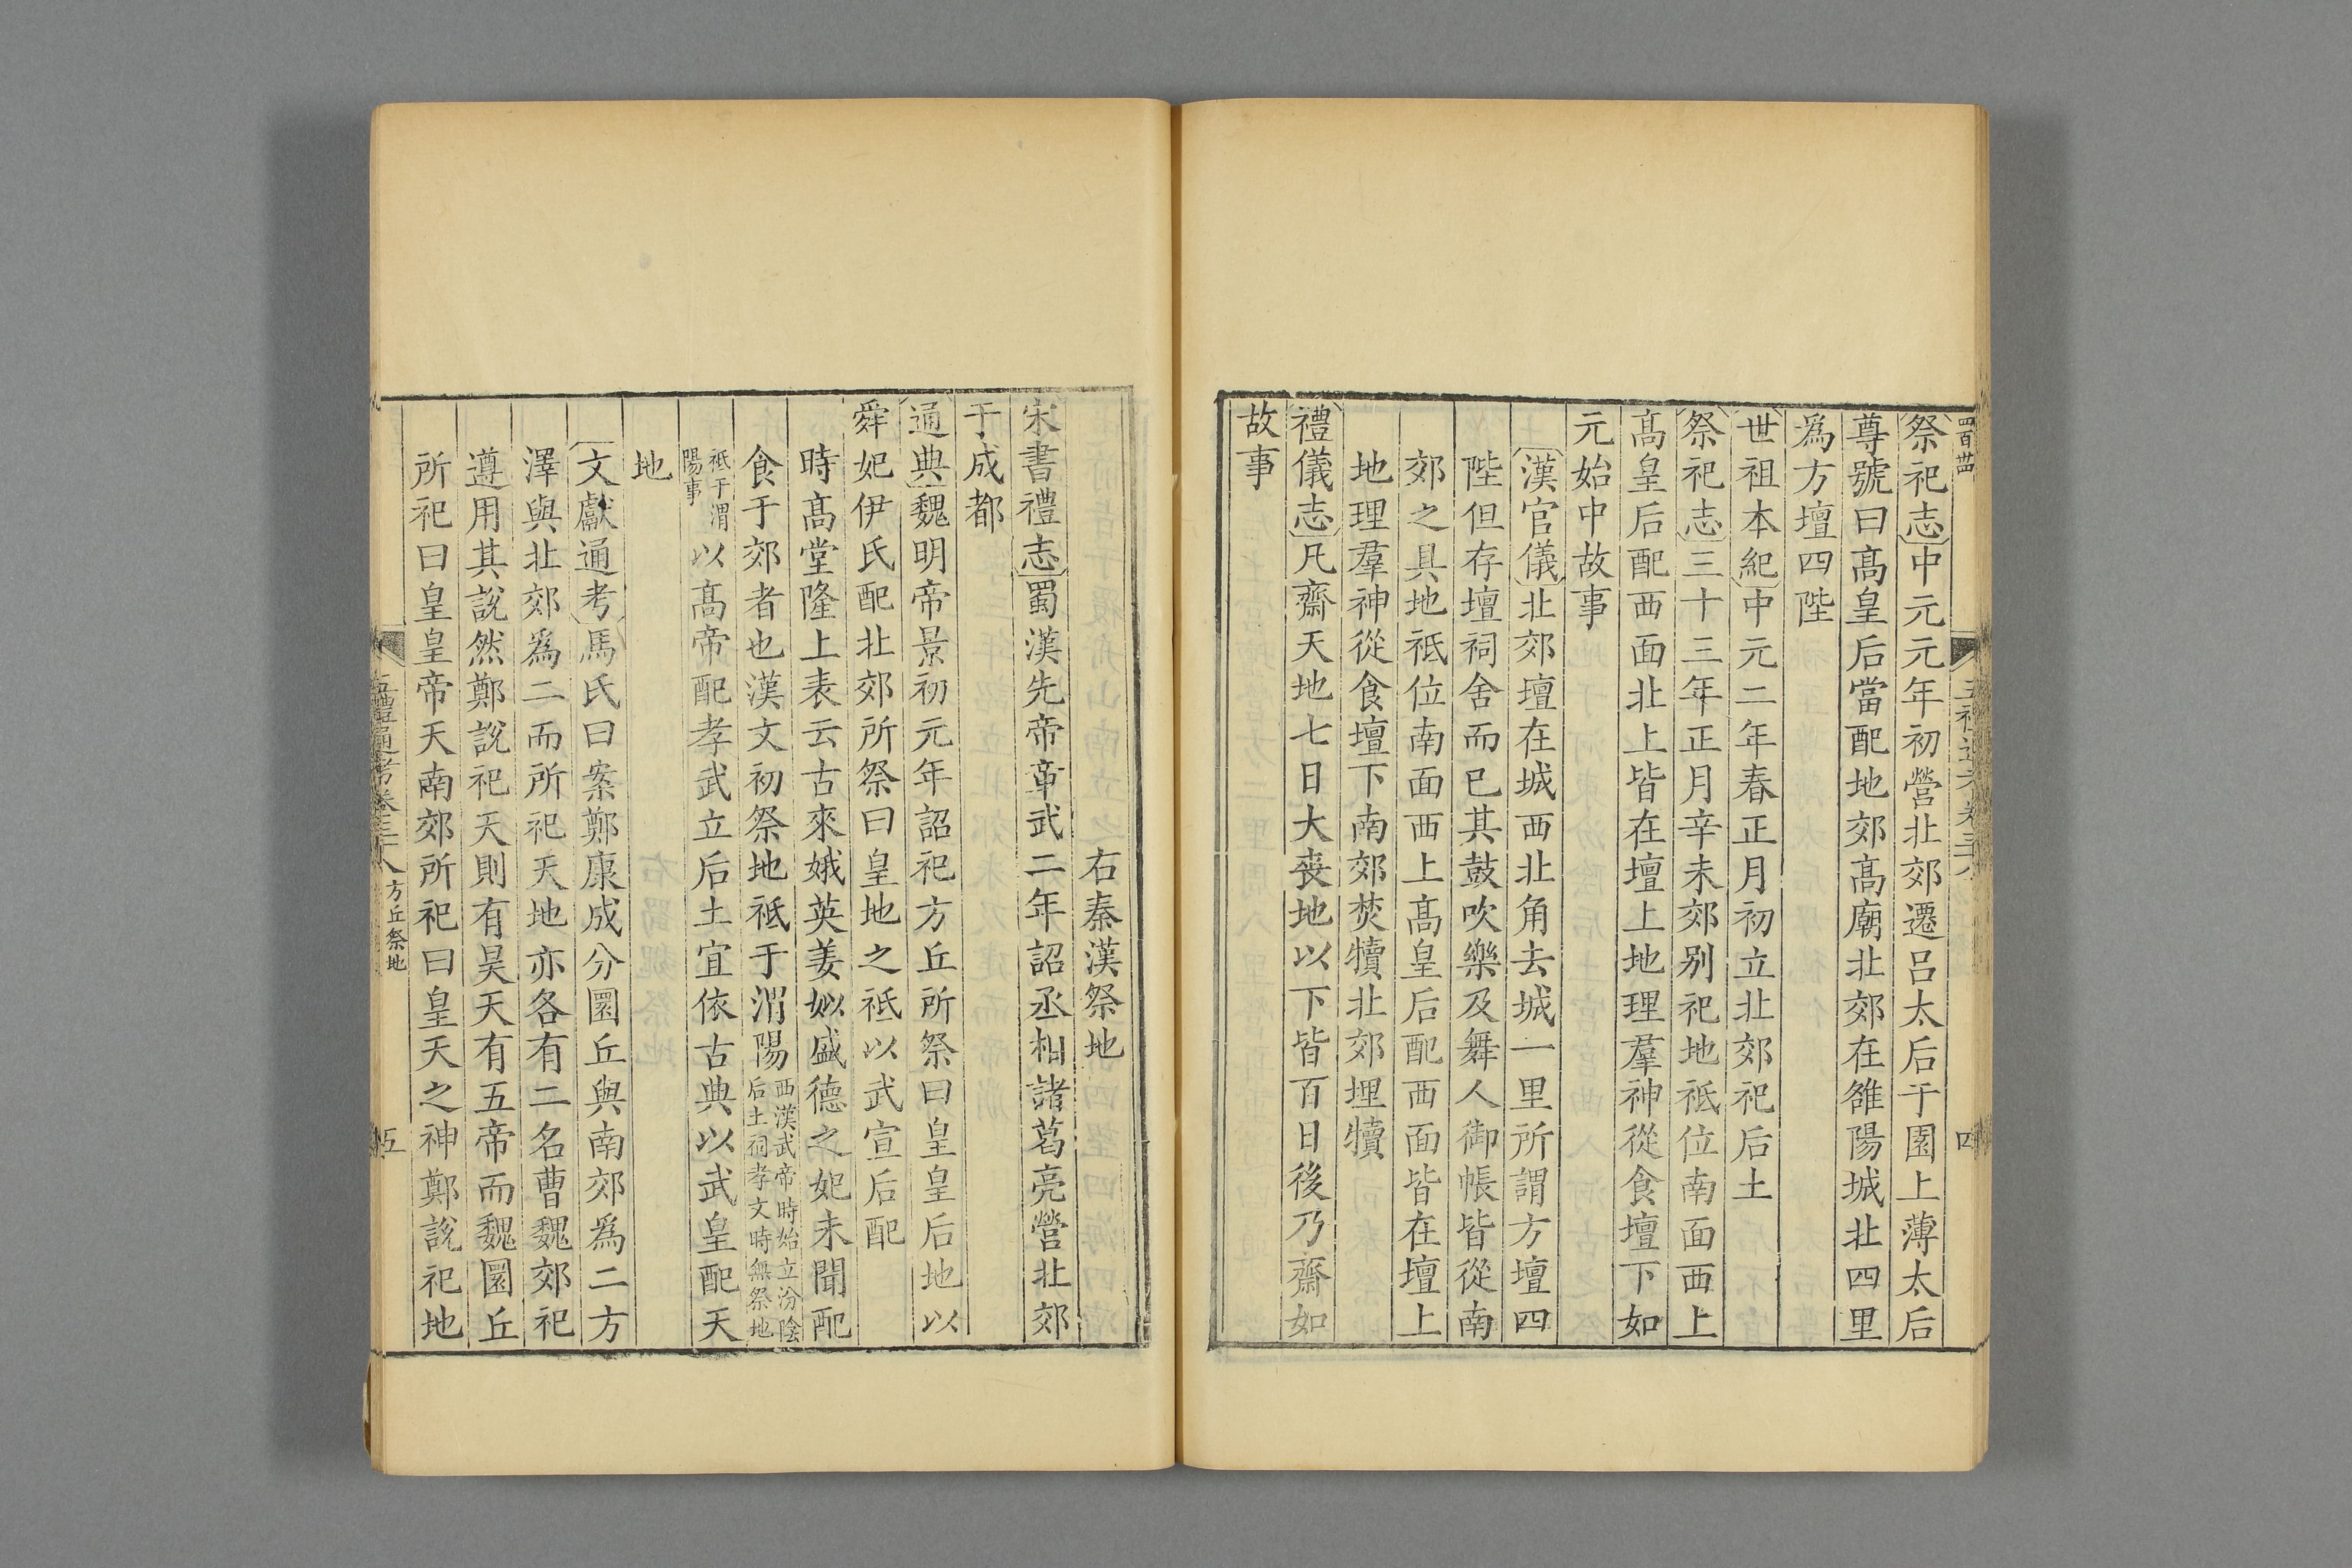 祭祀志中元元年初營北郊遷呂太后于園上薄太后
尊號曰髙皇后當配地郊髙廟北郊在雒陽城北四里
爲方壇四陛
世祖本紀中元二年春正月初立北郊祀后土
祭祀志三十三年正月辛未郊别祀地祗位南面西上
髙皇后配西面北上皆在壇上地理羣神從食壇下如
元始中故事
漢官儀北郊壇在城西北角去城一里所謂方壇四
陛但存壇祠舍而已其鼓吹樂及舞人御帳皆從南
郊之具地祗位南面西上髙皇后配西面皆在壇上
地理羣神從食壇下南郊焚犢北郊埋犢
禮儀志凡齋天地七日大喪地以下皆百日後乃齋如
故事
右秦漢祭地
宋書禮志蜀漢先帝章武二年詔丞相諸葛亮營北郊
于成都
通典魏明帝景初元年詔祀方丘所祭曰皇皇后地以
舜妃伊氏配北郊所祭曰皇地之祗以武宣后配
時髙堂隆上表云古來娥英姜姒盛德之妃未聞配
食于郊者也漢文初祭地祗于渭陽西漢武帝時始立汾陰后土祠孝文時無祭地
祗于渭陽事以髙帝配孝武立后土宜依古典以武皇配天
地
文獻通考馬氏曰案鄭康成分圜丘與南郊爲二方
澤與北郊爲二而所祀天地亦各有二名曹魏郊祀
遵用其說然鄭說祀天則有昊天有五帝而魏圜丘
所祀曰皇皇帝天南郊所祀曰皇天之神鄭說祀地
五禮通考卷三十八 方丘祭地 五